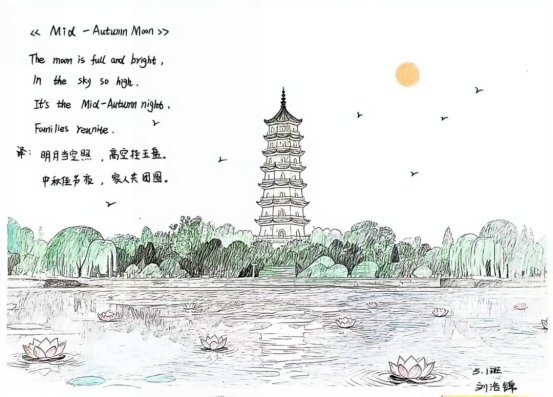 << Mid - Autumn Moon >>
The moon is full and bright,
In the sky so high.
It's the Mid-Autumn night,
Families reunite.
译: 明月当空照，高空挂玉盘。
中秋佳节夜，家人共团圆。
5.1班
刘浩锦